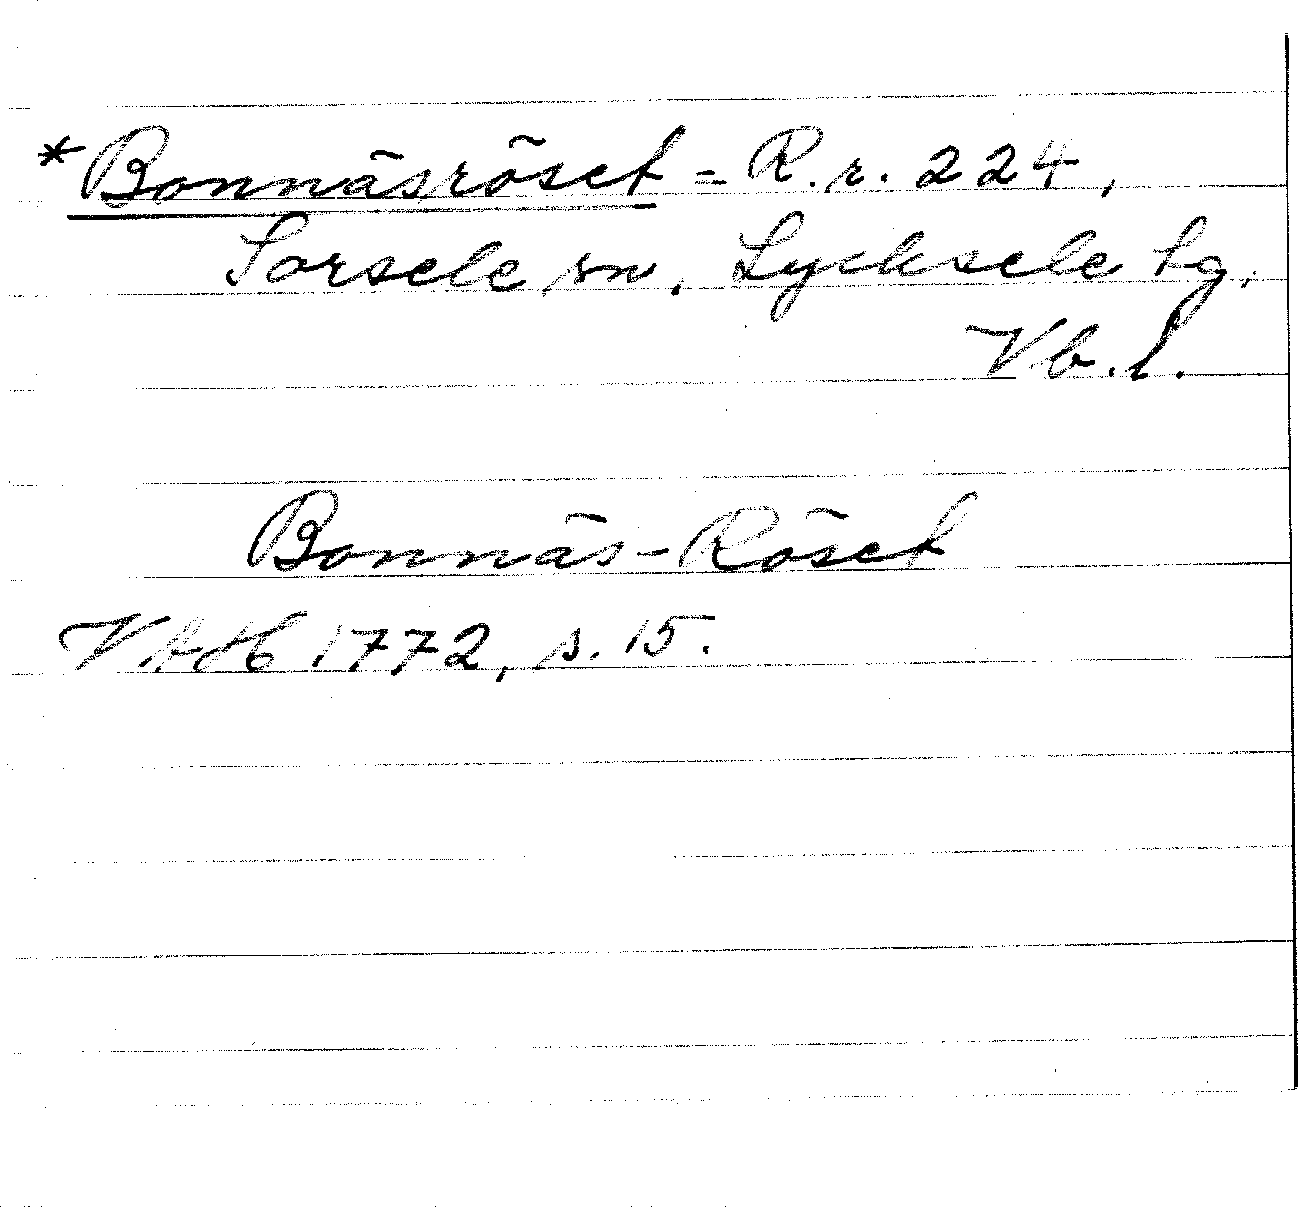 *Bonnäsröset = R.r. 224,
Sorsele sn, Lycksele lg,
Vb.l.
Bonnäs-Röset
VAH 1772, s. 15.